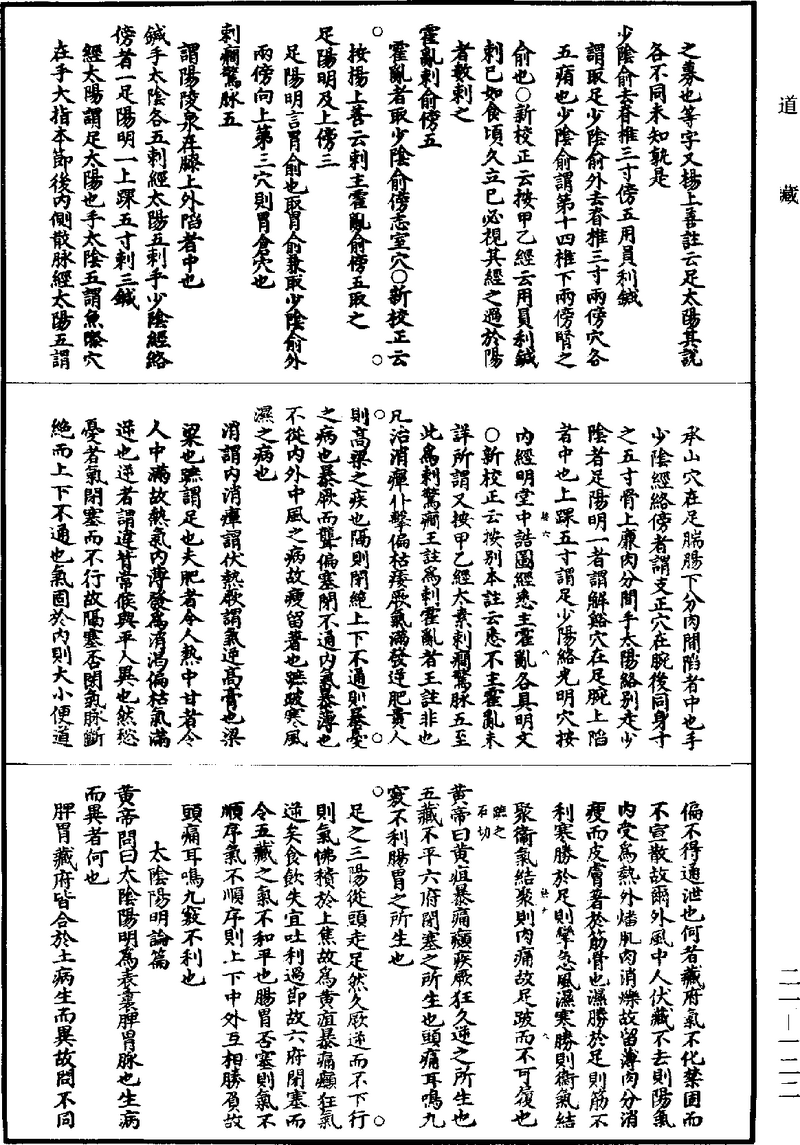 道藏
之募也等字又楊上善註云足太陽其說
各不同未知孰是
少陰俞去脊椎三寸傍五用員利鍼
謂取足少陰俞外去脊椎三寸兩傍穴各
五痏也少陰俞謂第十四椎下兩傍腎之
俞也○新校正云按甲乙經云用員利鍼
刺已如食頃久立已必視其經之過於陽
者數刺之
霍亂刺俞傍五
霍亂者取少陰俞傍志室穴○新校正云
按楊上善云刺主霍亂俞傍五取之
足陽明及上傍三
足陽明言胃俞也取胃俞兼取少陰俞外
兩傍向上第三穴則胃倉穴也
刺癇驚脉五
謂陽陵泉在膝上外陷者中也
鍼手太陰各五刺經太陽五刺手少陰經絡
傍者一足陽明一上踝五寸刺三鍼
經太陽謂足太陽也手太陰五謂魚際穴
在手大指本節後內側散脉經太陽五謂
承山穴在足腨腸下分肉間陷者中也手
少陰經絡傍者謂支正穴在腕後同身寸
之五寸骨上廉肉分間手太陽絡別走少
陰者足陽明一者謂解谿穴在足腕上陷
者中也上踝五寸謂足少陽絡光明穴按
內經明堂中誥圖經悉主霍亂各具明文
○新校正云按別本註云悉不主霍亂未
詳所謂又按甲乙經太素刺癇驚脉五至
此爲刺驚癇王註爲刺霍亂者王註非也
凡治消癉仆擊偏枯痿厥氣滿發逆肥貴人
則高粱之疾也隔則閉絕上下不通則暴憂
之病也暴厥而聾偏塞閉不通內氣暴薄也
不從內外中風之病故瘦留著也蹠跛寒風
濕之病也
消謂內消癉謂伏熱厥謂氣逆高膏也梁
粱也蹠謂足也夫肥者令人熱中甘者令
人中滿故熱氣內薄發爲消渴偏枯氣滿
逆也逆者謂違背常候與平人異也然愁
憂者氣閉塞而不行故隔塞否閉氣脉斷
絕而上下不通也氣固於內則大小便道
偏不得通泄也何者藏府氣不化禁固而
不宣散故爾外風中人伏藏不去則陽氣
內受爲熱外燔肌肉消爍故留薄肉分消
瘦而皮膚著於筋骨也濕勝於足則筋不
利寒勝於足則攣急風濕寒勝則衛氣結
聚衛氣結聚則肉痛故足跛而不可履也
蹠之石切
黄帝曰黄疸暴痛癲疾厥狂久逆之所生也
五藏不平六府閉塞之所生也頭痛耳鳴九
竅不利腸胃之所生也
足之三陽從頭走足然久厥逆而不下行
則氣怫積於上焦故爲黄疸暴痛癲狂氣
逆矣食飲失宜吐利過節故六府閉塞而
令五藏之氣不和平也腸胃否塞則氣不
順序氣不順序則上下中外互相勝負故
頭痛耳鳴九竅不利也
太陰陽明論篇
黄帝問曰太陰陽明爲表裏脾胃脉也生病
而異者何也
脾胃藏府皆合於土病生而異故問不同
二一－一二二